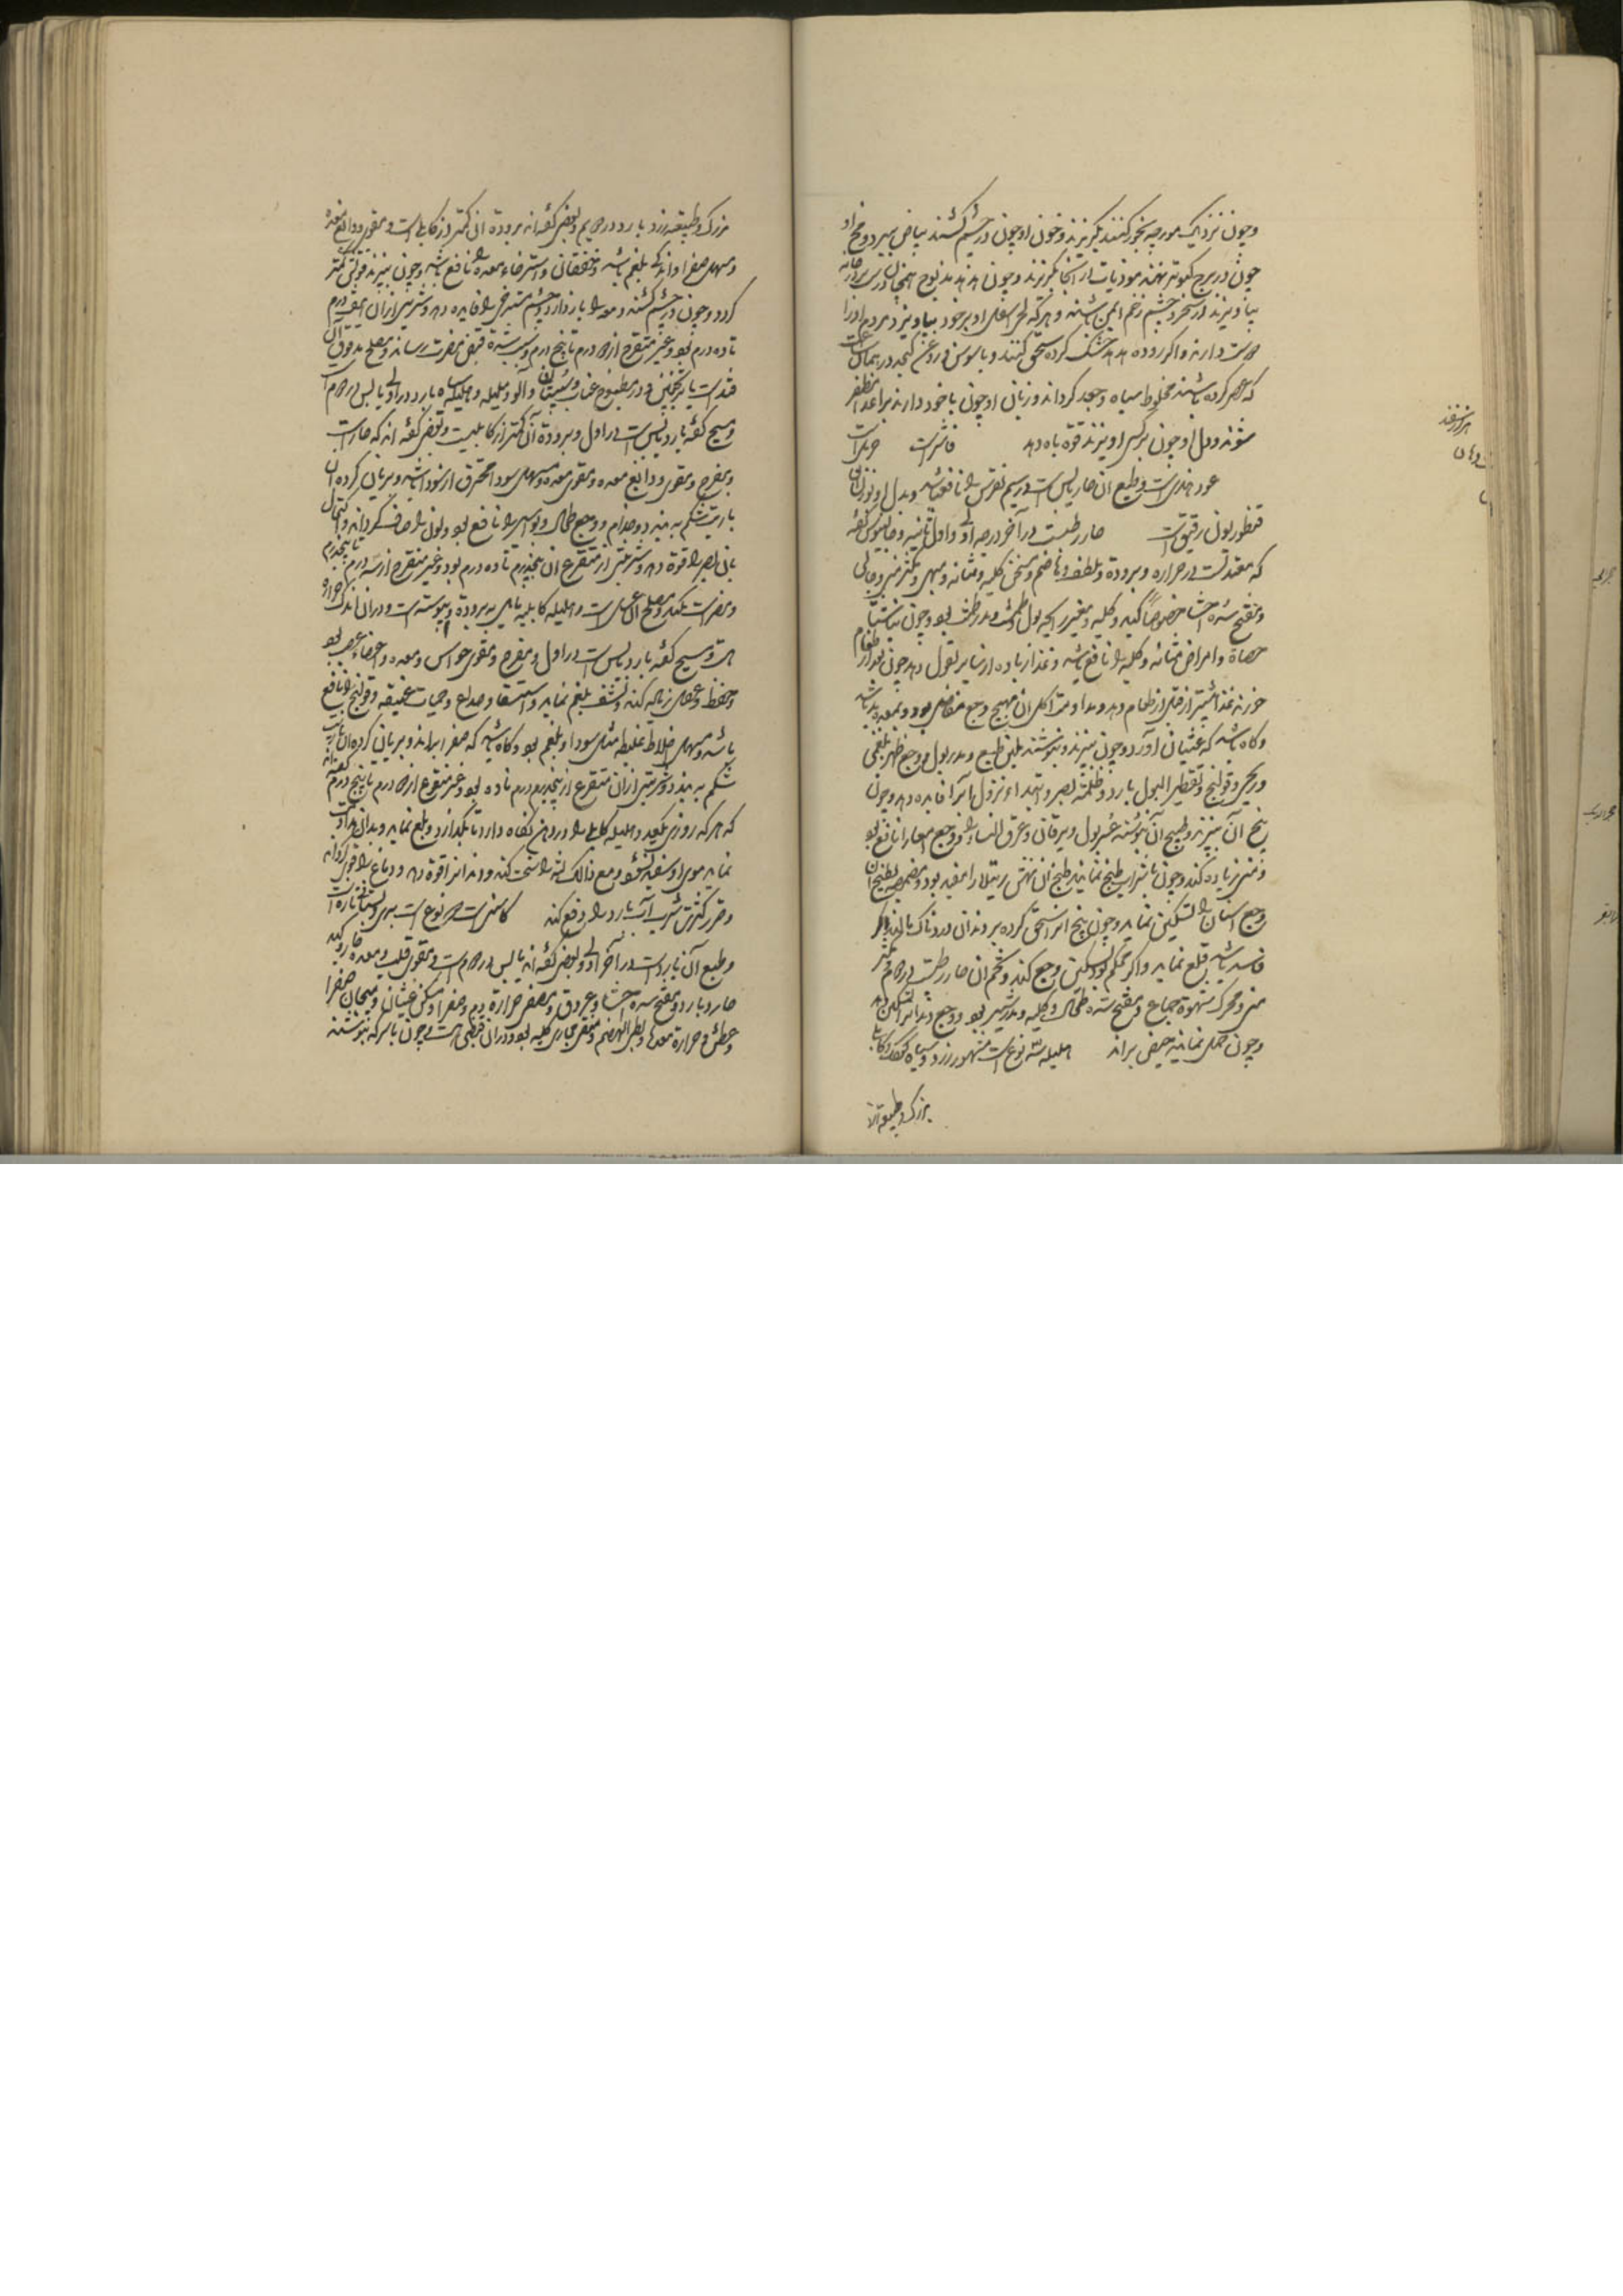 وچون نزدیک مورچه بخور کنند بگریزند وخون او چون در چشم کشند بیاض ببرد و مخ او
چون در برج کبوتر نهند موذیات از انجا بگریزند وچون هدهد مذبوح همچنان در سر در خانه
بیاویزند از سحر وچشم زخم ایمن باشند و هرکه لحی اسفل او بر خود بیاویزد مردم او را
دوست دارند واکر روده هدهد خشک کرده سحق کنند و با سوس در روغن کنجد در همان ساعت
که عصر کرده باشند مخلوط سیاه وجعد کرداند و زبان او چون با خود دارند بر اعدا مظفر
شوند ودل او چون بر کسی اویزند قوة باه دهد فاشرست
عود هندیست وطبع ان حار یابس است در سیم نقرس را نافع باشد وبدل او بوزن ان
قنطوریون رقیق است حار رطبست در آخر درجه اولی واول ثانیه وجالینوس کفته
که معتدلست در حرارة وبرودة وملطف و هاضم ومسخن کلیه ومثانه ومبهی ومکثر منی وجالی
ومفتح سده احشا خصوصا کبد وکلیه ومغیر رایحه بول ومدر طمث بود وچون
حصاة وامراض مثانه وکلیه را نافع باشد وغذا زیاده از سایر بقول دهد چون بعد از طعام
خورند غذا بیشتر از قبل از طعام دهد ومداومت اکل ان مهیج وجع مفاصل بود ومعده بد باشد
وکاه باشد که غثیان آورد وچون بپزند وبنوشند ملین طبع ومدر بول ووجع ظهر بلغمی
وریحی وقولنج وتقطیر البول بارد وظلمت بصر وابتداء نزول ما را فایده دهد وچون
بیخ آن بپزند وطبیخ آن بنوشند عسر بول ویرقان وعرق النساء ووجع امعا را نافع بود
ومنی زیاده کند وچون با شراب طبخ نمایند طبیخ ان نهش رتیلا را مفید بود ومضمضه بطبیخ ان
وجع اسنان را تسکین نماید وچون بیخ انرا سحق کرده بر دندان دردناک مالند اکر
فاسد باشد قلع نماید واکر محکم بود تسکین وجع کند وتخم ان حار رطبست در دوم ومکثر
منی ومحرک شهوة جماع ومفتح سده طحال وکلیه ومدر شیر بود ووجع دندانرا تسکین دهد
وچون حمل نمایند حیض براند هلیله سه نوعست مشهور زرد وسیاه کوچک وکابلی
بزرک وطبیعة
بزرک وطبیعة زرد بارد در دویم وبعضی کفته اند برودة ان کمتر از کابلی است ومقوی ودابغ معده
ومسهل صفرا واندکی بلغم باشد وخفقان واسترخاء معده را نافع باشد وچون بپزند قوتش کمتر
کردد وچون در چشم کشند دمعه را باز دارد وچشم مسترخی را فایده دهد وشربتی از ان
تا ده درم بود وغیر منقوع از دو درم تا پنج درم وبسبب شدة قبض مضرت رساند ومصلح مدقوق آن
قندست یا ترنجبین ودر مطبوخ عناب وسپستان وآلو وبلیله وهلیله سیاه بارد در اولی یابس در دوم است
ومسیح کفته بارد یابس است در اول وبرودة آن کمتر از کابلیست وبعضی کفته اند که حار است
ومفرح ومقوی ودابغ معده ومقوی معده ومسهل سوداء محترق از سودا باشد وبریان کرده ان
با زیت شکم ببندد وجذام ووجع طحال وبواسیر را نافع بود ولون را صاف کرداند واکتحال
بان بصر را قوة دهد وشربتی از منقوع ان پنجدرم تا ده درم بود وغیر منقوع از سه درم تا پنجدرم
ومضرت بکبد ومصلح ان عسل است وهلیله کابلی مایل ببرودة ویبوست است ودر ان اندک حرارة
هست ومسیح کفته بارد یابس است در اول ومفرح ومقوی حواس ومعده واعضاء عصبی بود
وحفظ وعقل زیاده کند ونشف بلغم نماید واستسقا وصداع وحمیات عتیقه وقولنج را نافع
باشد ومسهل اخلاط غلیظه مثل سودا وبلغم بود وکاه باشد که صفرا براند وبریان کرده ان با زیت
شکم ببندد وشربتی از ان منقوع از پنجدرم تا ده بود وغیر منقوع از دو درم تا پنج درم کفته اند
که هرکه روزی یکعدد هلیله کابلی را در دهن نکاه دارد تا بکدازد وبلع نماید وبدان مداومت
نماید موی او سفید نشود ومع ذالک لثه را سخت کند ودندانرا قوة دهد ودماغ را قوی کرداند
وضرر کثرت شرب آب بارد را دفع کند کاسنی است دو نوع است بری وبستانی
وطبع آن بارد است در آخر اولی وبعضی کفته اند یابس در دوم است ومقوی قلب ومعده حار وکبد
حار وبارد ومفتح سده احشا وعروق ومصفی حرارة دم وصفرا ومسکن غثیان وهیجان صفرا
وعطش وحرارة معده وبطی الهضم ومنقی مجاری کلیه بود ودر ان قبضی هست وچون با سرکه بنوشند